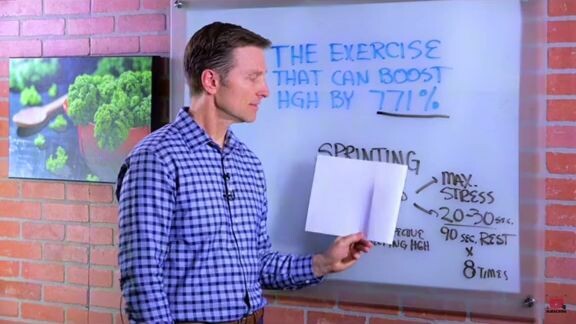 THE EXERCISE
THAT CAN BOOST
HGH BY 771%
SPRINTING
MAX.
STRESS
20-30 SEC.
90 SEC. REST
X
8 TIMES
HGH
SUBSCRIBE